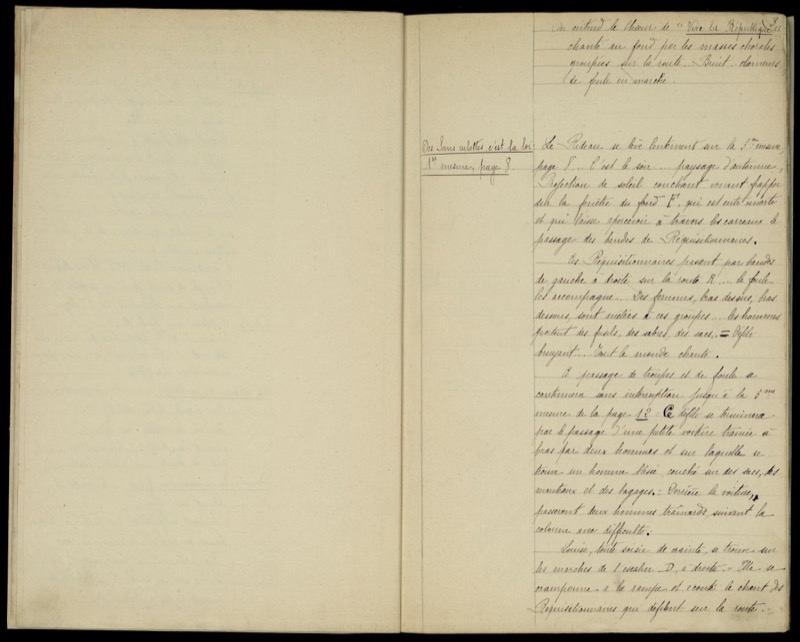 on entend le chœur de "Vive la République"
chanté au fond par les masses chorales
groupées sur la route. Bruit, clameurs
de foule en marche.
Des Sans culottes, c'est la loi
1re mesure, page 8.
Le Rideau se lève lentement sur la 3me mesure
page 8.. C'est le soir... paysage d'automne,
Projection de soleil couchant venant frapper
sur la fenêtre du fond F. qui est entr'ouverte
et qui laisse apercevoir à travers les carreaux le
passage des bandes de Réquisitionnaires.
Les Réquisitionnaires passent par bandes
de gauche à droite sur la route R... la foule
les accompagne... Des femmes, bras dessus, bras
dessous, sont mêlées à ces groupes... les hommes
portent des fusils, des sabres, des sacs. = Défilé
bruyant... Tout le monde chante.
Ce passage de troupes et de foule se
continuera sans interruption jusqu'à la 5me
mesure de la page 12. Ce défilé se terminera
par le passage d'une petite voiture traînée à
bras par deux hommes et sur laquelle se
trouve un homme blessé couché sur des sacs, des
manteaux et des bagages. - Derrière la voiture,
passeront deux hommes traînards, suivant la
colonne avec difficulté.
Louise, toute saisie de crainte, se trouve sur
les marches de l'escalier D, à droite. - Elle se
cramponne à la rampe et écoute le chant des
Réquisitionnaires qui défilent sur la route. -